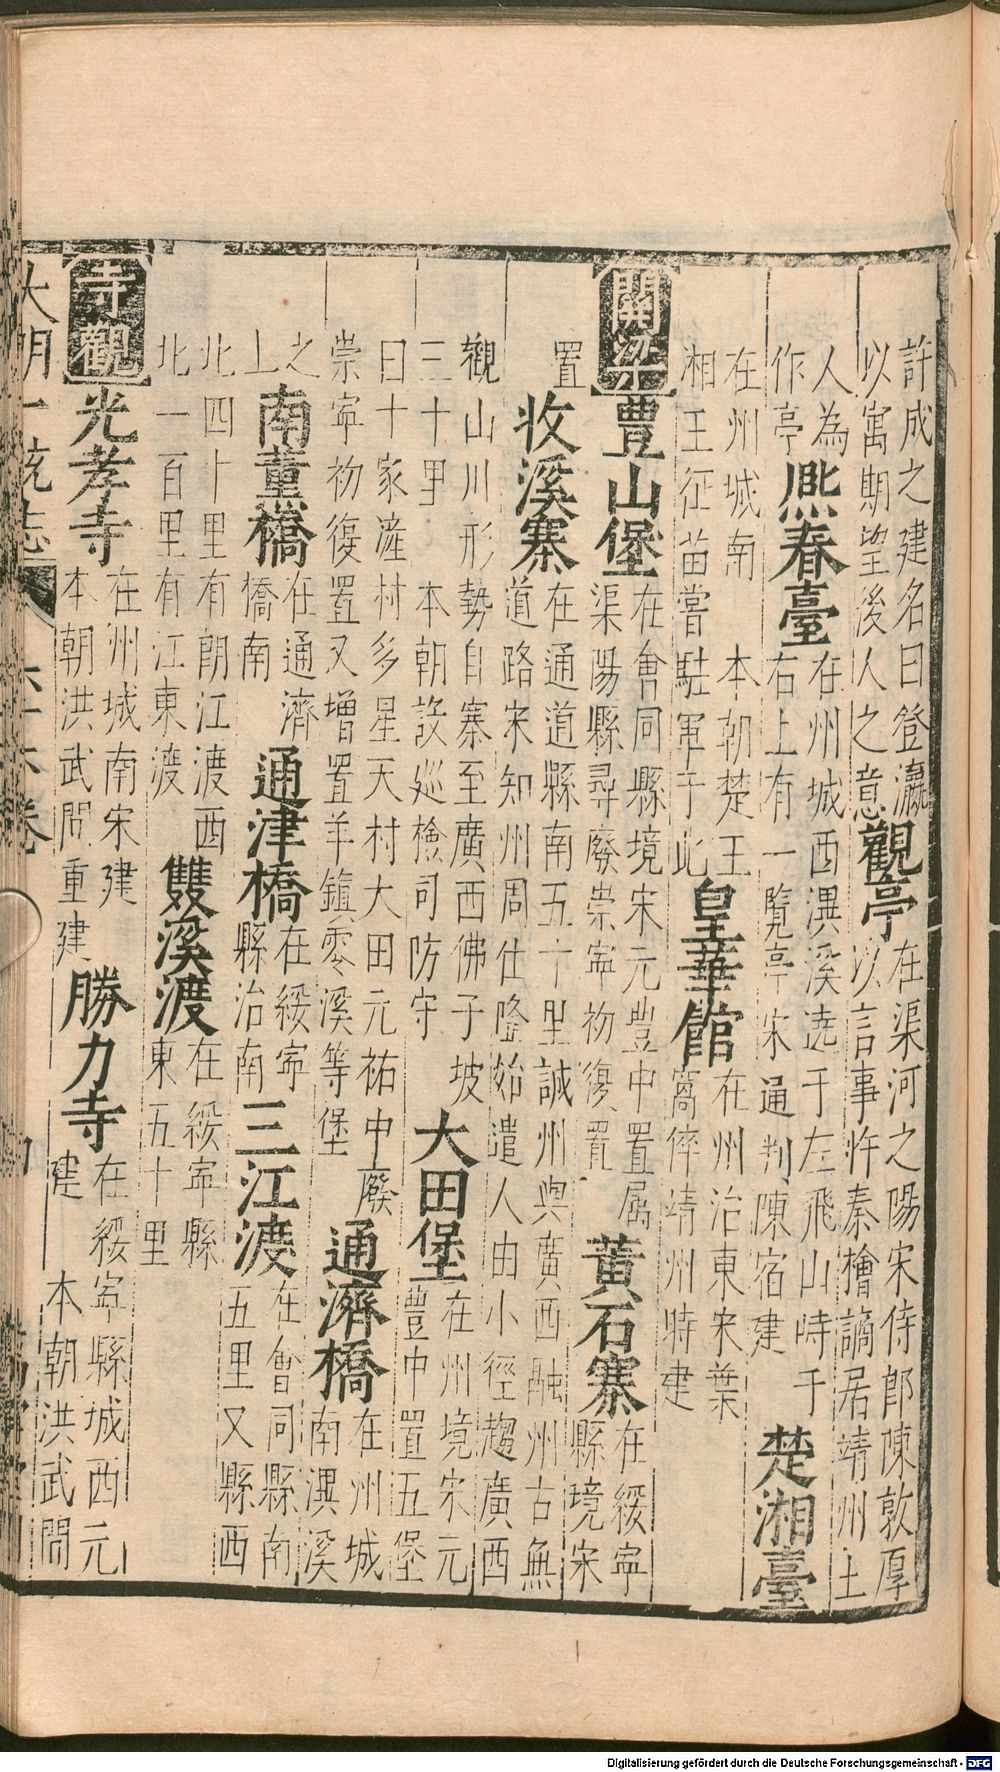 許成之建名曰登瀛
以寓期望後人之意
觀亭
在渠河之陽宋侍郎陳敦厚
以言事忤秦檜謫居靖州土
人為
作亭
熈春臺
在州城西潩溪遶于左飛山峙于
右上有一覽亭宋通判陳宿建
楚湘臺
在州城南 本朝楚王
湘王征苗嘗駐軍于此
皇華館
在州治東宋葉
窩倅靖州時建
關梁
豊山堡
在會同縣境宋元豊中置属
渠陽縣尋廢崇寧初復置
黃石寨
在綏寧
縣境宋
置
收溪寨
在通道縣南五十里誠州與廣西融州古無
道路宋知州周仕隆始遣人由小徑趨廣西
觀山川形勢自寨至廣西佛子坡
三十里 本朝設巡檢司防守
大田堡
在州境宋元
豊中置五堡
曰十家滻村多星天村大田元祐中廢
崇寧初復置又增置羊鎮零溪等堡
通濟橋
在州城
南潩溪
之
上
南薰橋
在通濟
橋南
通津橋
在綏寧
縣治南
三江渡
在會同縣南
五里又縣西
北四十里有朗江渡西
北一百里有江東渡
雙溪渡
在綏寧縣
東五十里
寺觀
光孝寺
在州城南宋建
本朝洪武間重建
勝力寺
在綏寧縣城西元
建 本朝洪武間
大明一統志 六十六卷
Digitalisierung gefördert durch die Deutsche Forschungsgemeinschaft - DFG